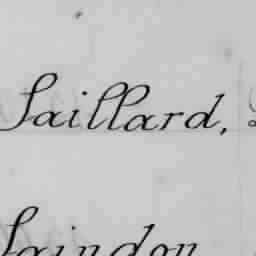 Saillard,
Saindon